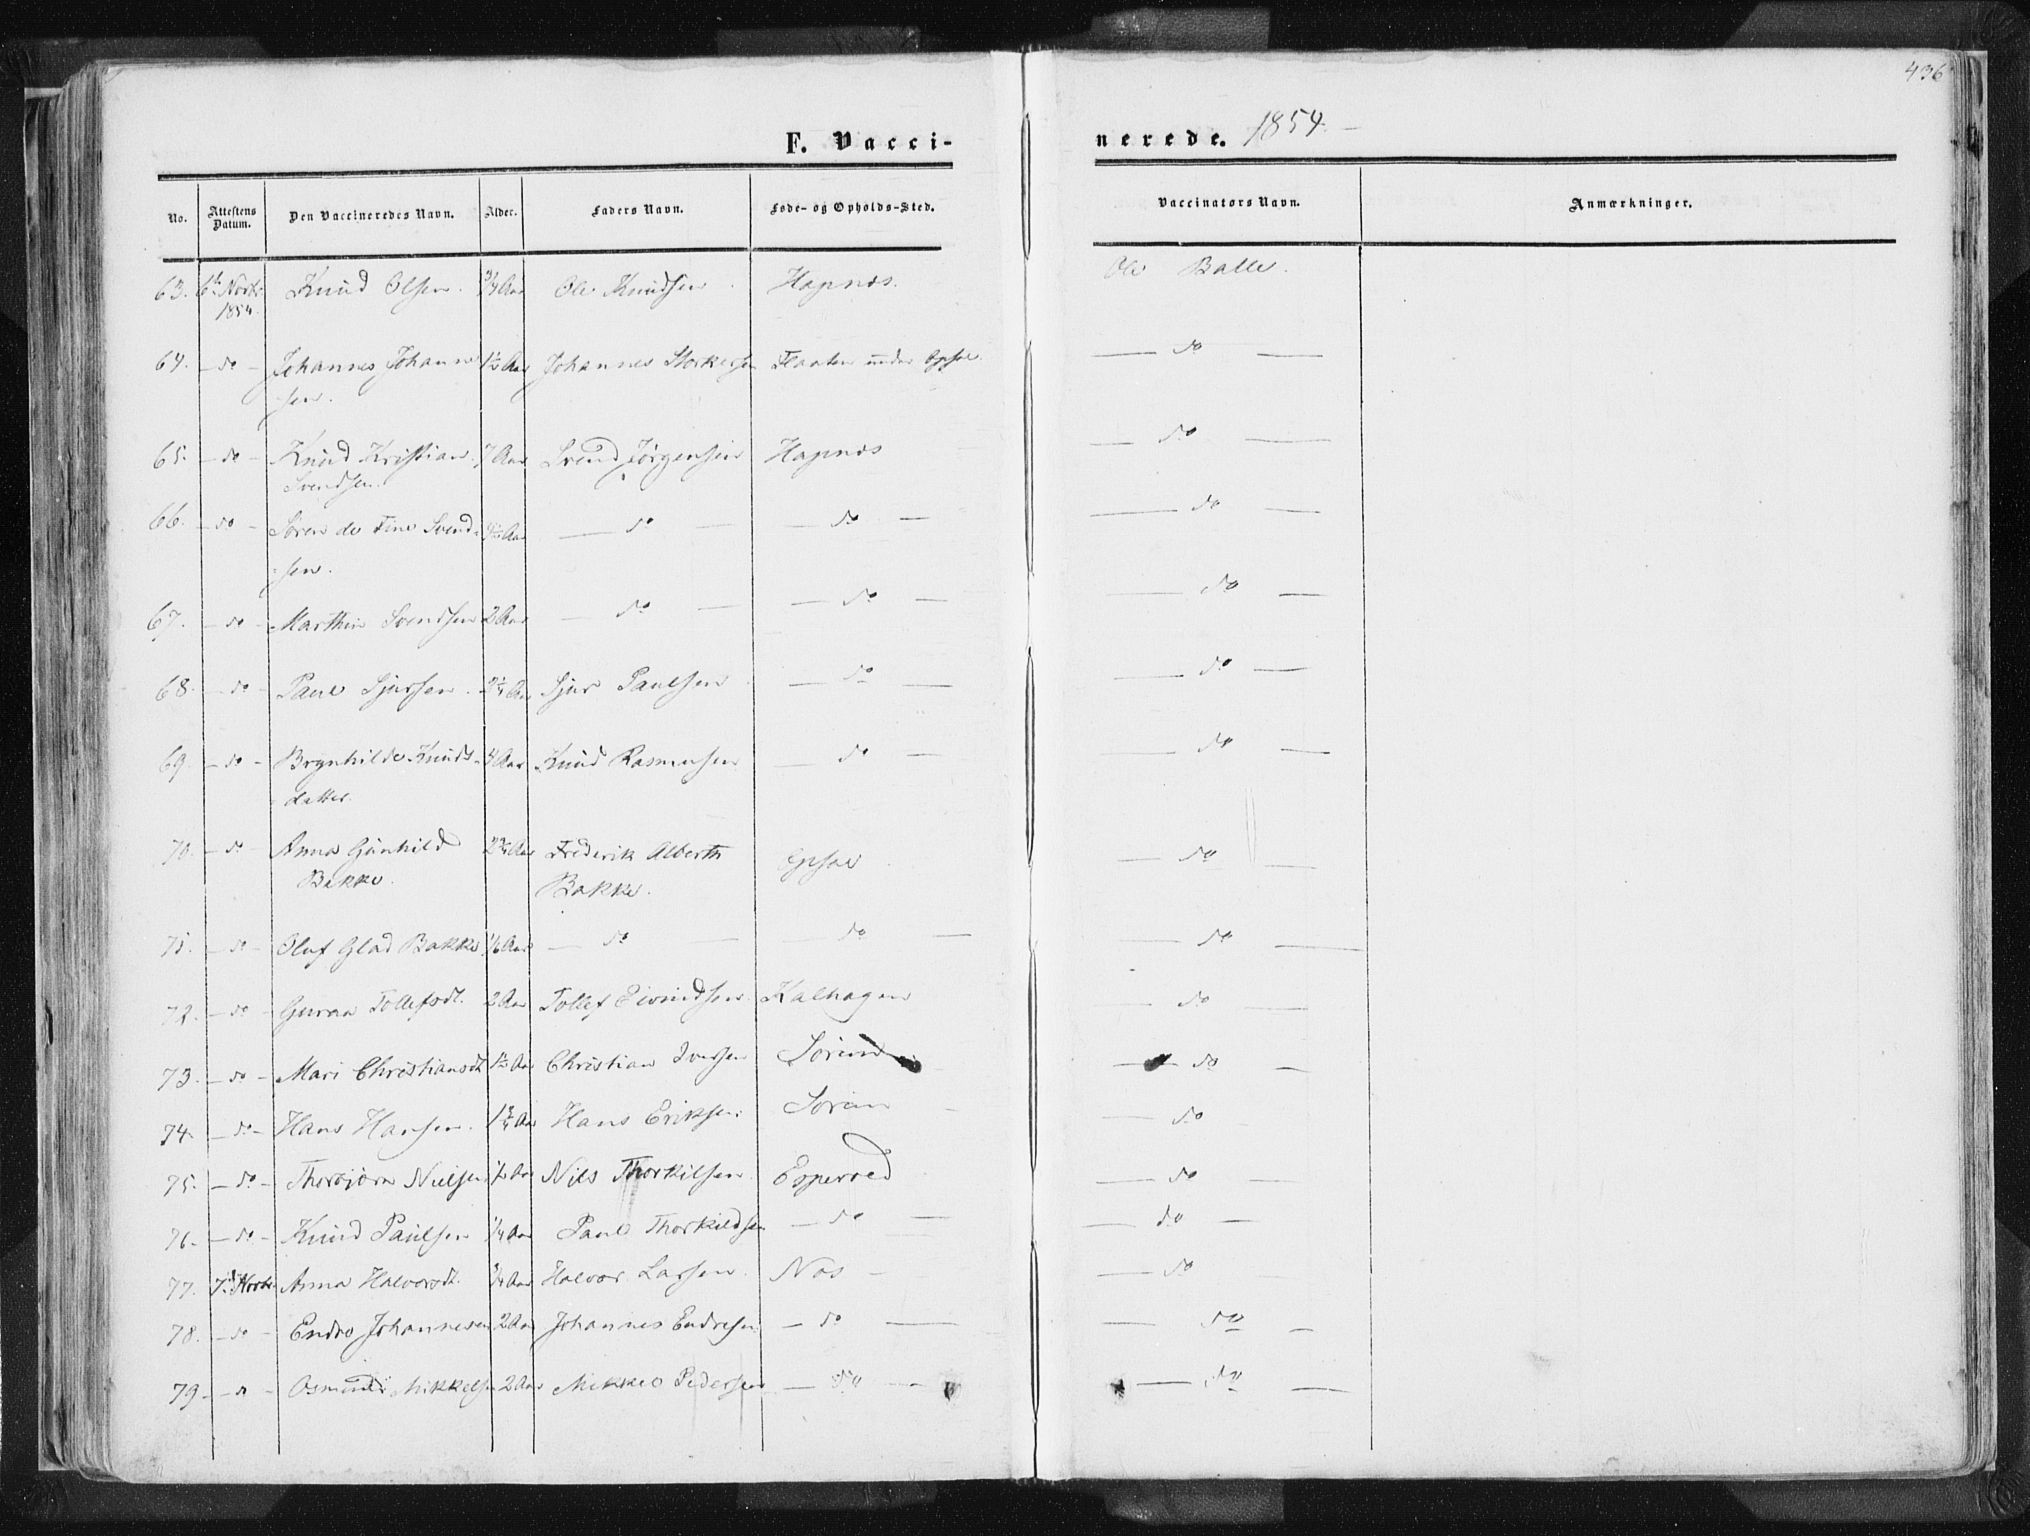 436
F. Vacci-
nerede. 1854.
No. Attestens Datum. Den Vaccineredes Navn. Alder. Faders Navn. Føde- og Opholds-Sted. Vaccinators Navn. Anmærkninger.
63. 6te 1854. Knud Olsen. 3/4 Aar Ole Knudsen Hapnæs. Ole Balle.
64. — do — Johannes Johanne 1½ Aar Johannes Storkersen Flaaten under Opsal — do —
sen.
65. — do — Knud Kristian 7 Aar Svend Jørgensen Hapnæs — do —
Svendsen.
66. — do — Søren de Fine Svend- 4½ Aar — do — — do — — do —
sen.
67. — do — Marthin Svendsen 2 Aar — do — — do — — do —
68. — do — Paul Sjursen. Aar Sjur Paulsen — do — — do —
69. — do — Brynhilde Knuds- 4 Aar Knud Rasmusen — do — — do —
datter.
70. — do — Anna Gunhild 2¾ Aar Frederik Alberth Opsal — do —
Bakke. Bakke.
71. — do — Oluf Glad Bakke 1/6 Aar — do — — do — — do —
72. — do — Guraa Tollefsdt. 2 Aar Tollef Eivindsen Kalhagen — do —
73. — do — Mari Christiansdt 1½ Aar Christian Iversen — do —
74. — do — Hans Hansen. 1¾ Aar Hans Eriksen — do —
75. — do — Thorbjørn Nielsen ½ Aar Nils Thorkilsen Esperoed — do —
76. — do — Knud Paulsen 1/4 Aar Paul Thorkildsen — do — — do —
77. 7de Anna Halvorsdt. 3/4 Aar Halvor Larsen Næs — do —
78. — do — Endre Johannesen 2 Aar Johannes Endresen — do — — do —
79 — do — Osmund Mikkelsen 2 Aar Mikkel Pedersen — do — — do —